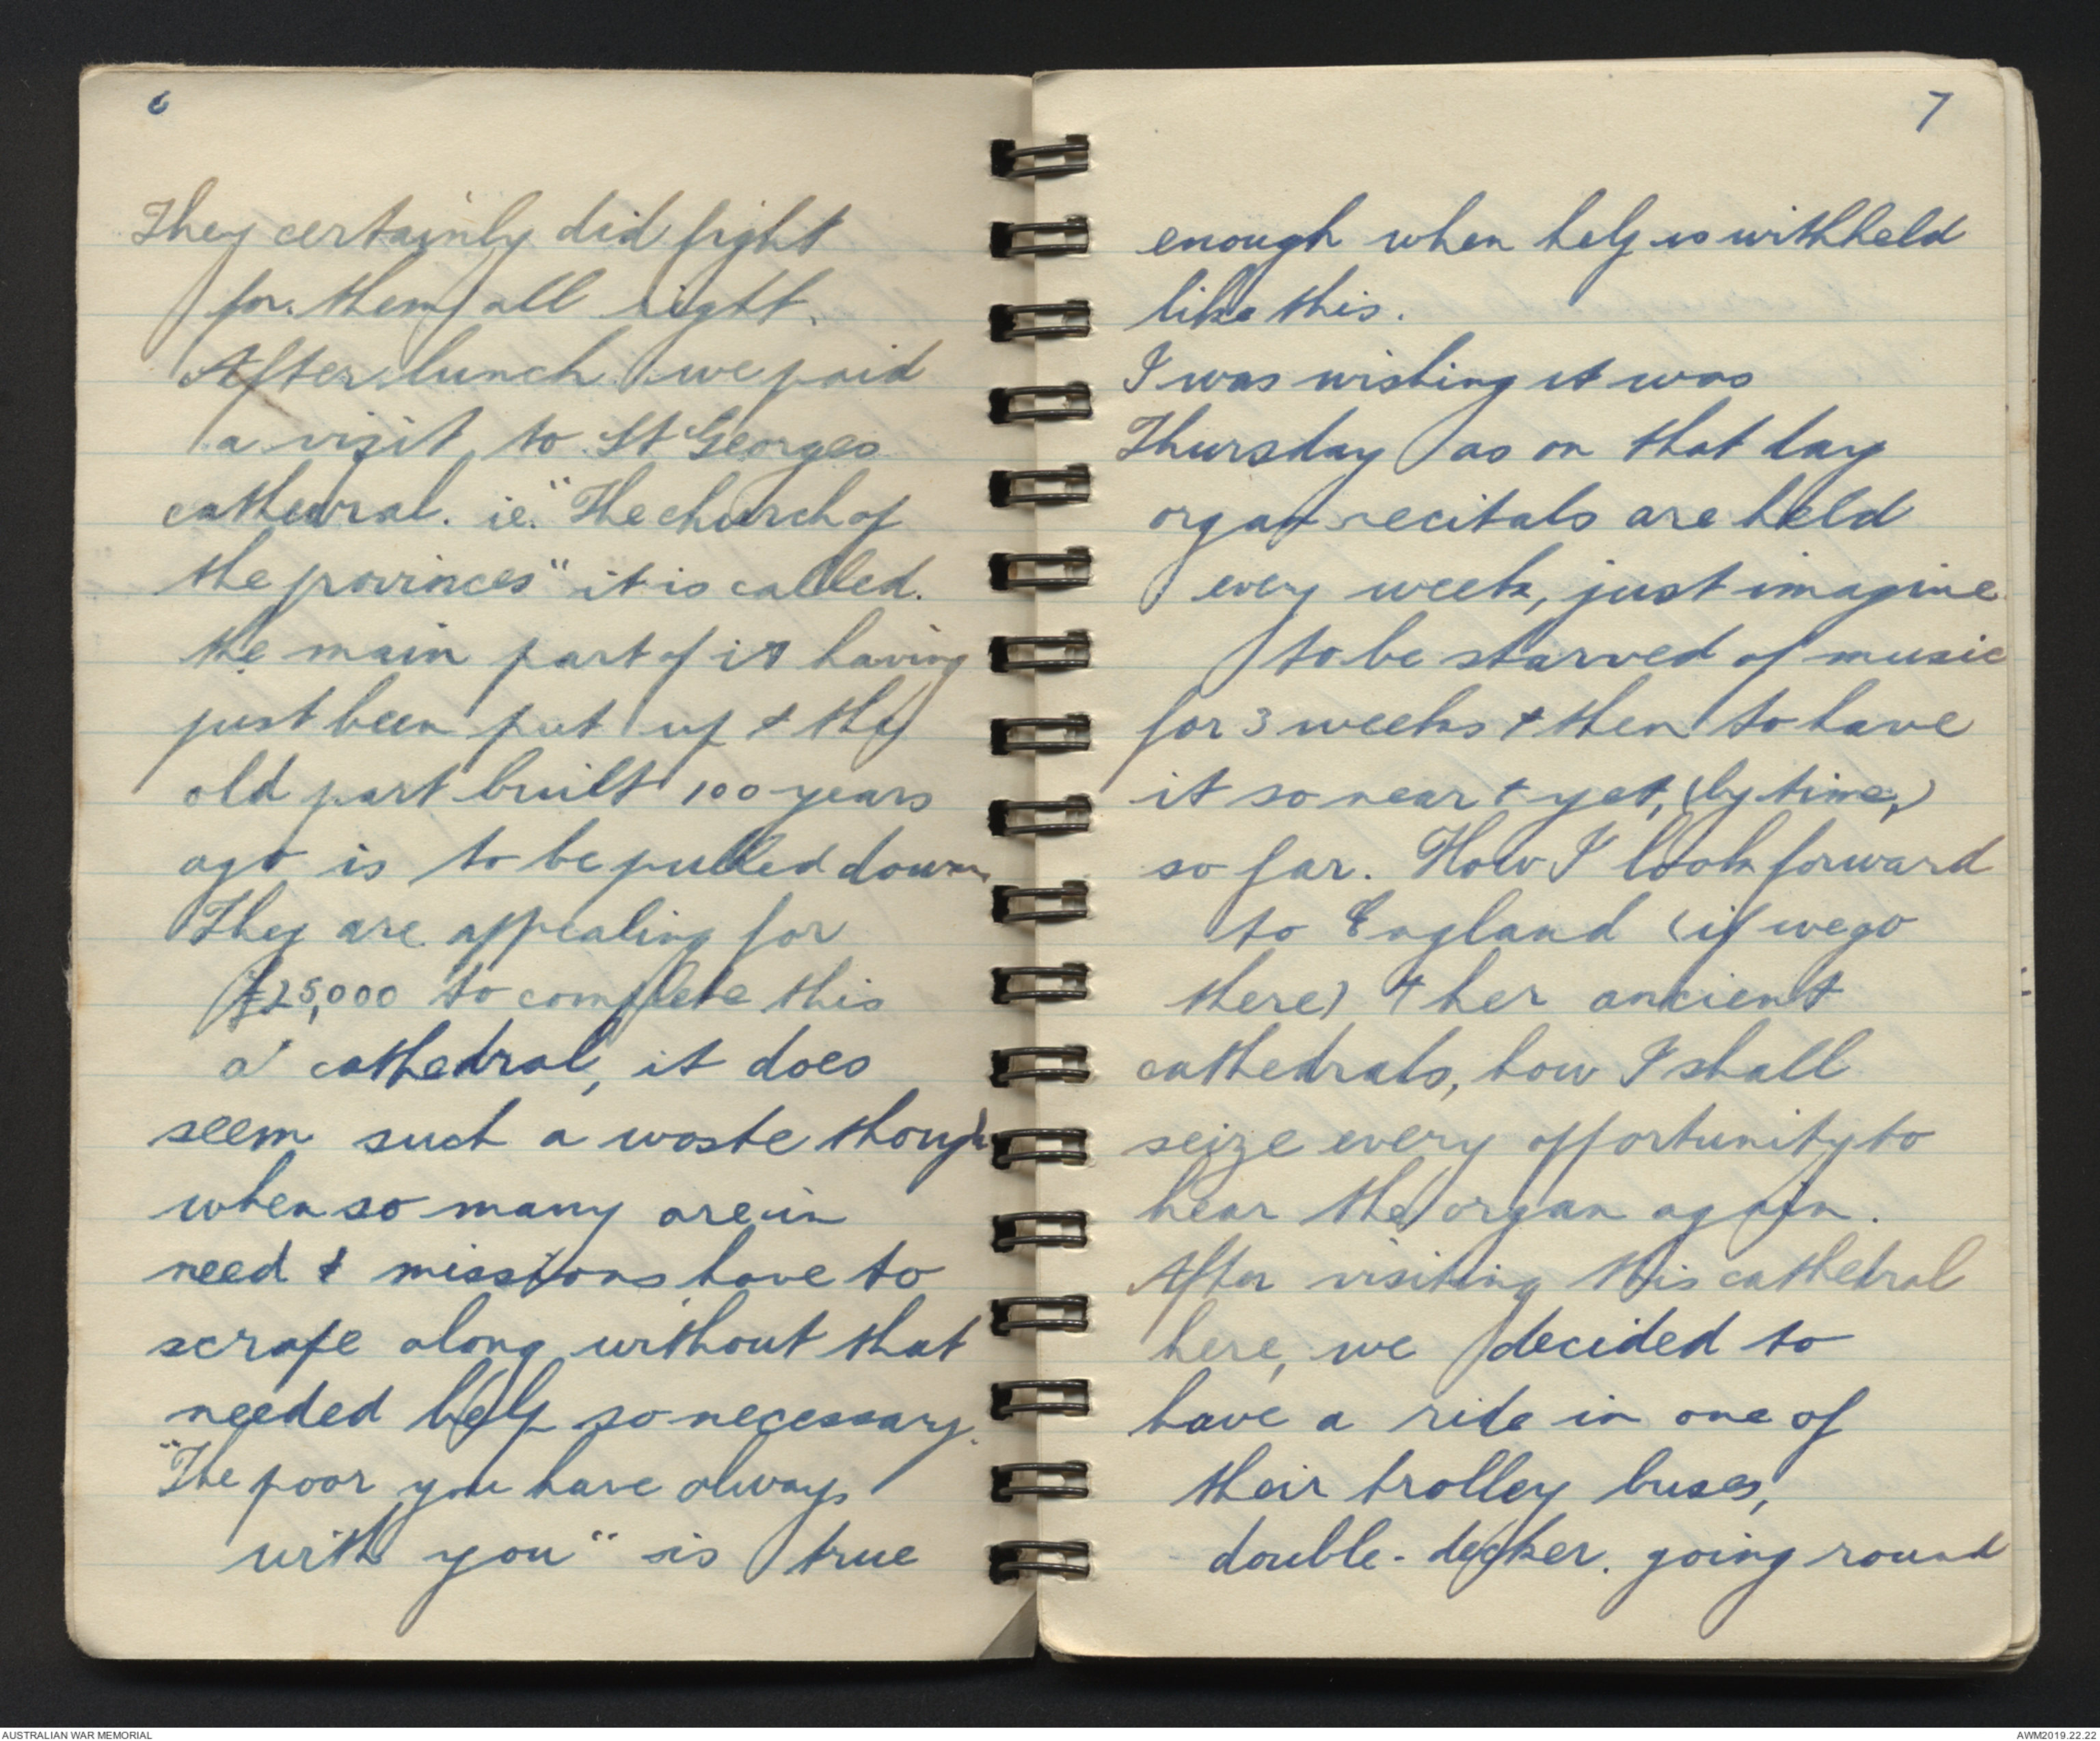 6
They certainly did fight
for them all right.
After lunch we paid
a visit to St Georges
cathedral. ie. "The church of
the provinces" it is called.
the main part of it having
just been put up & the
old part built 100 years
ago is to be pulled down
They are appealing for
£25,000 to complete this
a' cathedral, it does
seem such a waste though
when so many are in
need & missions have to
scrape along without that
needed help so necessary.
"The poor you have always
with you" is true
7
enough when help is withheld
like this.
I was wishing it was
Thursday as on that day
organ recitals are held
every week, just imagine
to be starved of music
for 3 weeks & then to have
it so near & yet, (by time,)
so far. How I look forward
to England (if we go
there) & her ancient
cathedrals, how I shall
seize every opportunity to
hear the organ again.
After visiting this cathedral
here, we decided to
have a ride in one of
their trolley buses,
double-decker. going round
AUSTRALIAN WAR MEMORIAL
AWM2019.22.22